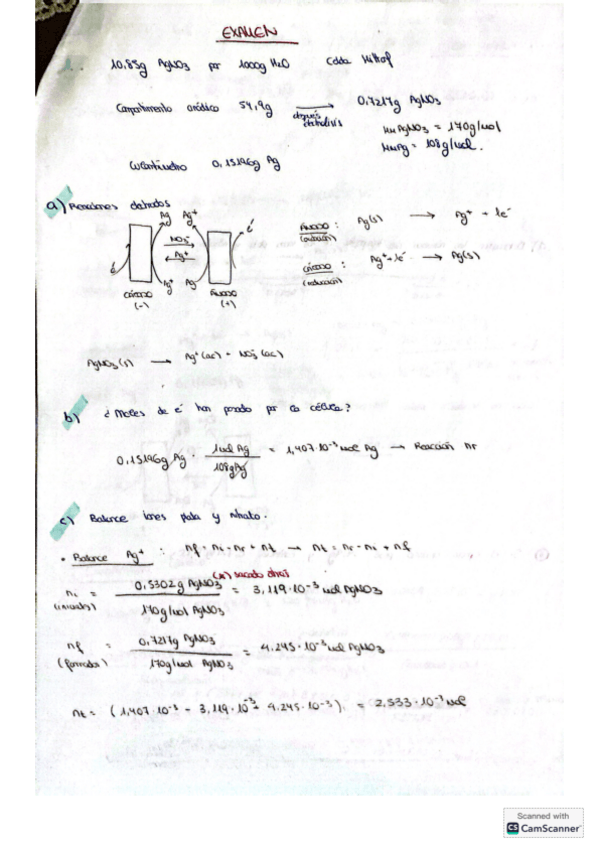 EXAMEN
10,85g AgNO3 por 1000g H2O Celda Hittorf
Compartimento anódico 54,9g → 0,7217g AgNO3
después electrolisis
MmAgNO3 = 170g/mol
MmAg = 108g/mol.
Culombímetro 0,15196g Ag
a) Reacciones electrodos
Ag Ag+ é
NO3-
Ag+
é Ag+ Ag
CÁTODO (-) ÁNODO (+)
ÁNODO : Ag(s) → Ag+ + 1e-
(oxidación)
CÁTODO : Ag+ + 1e- → Ag(s)
(reducción)
AgNO3(s) → Ag+(ac) + NO3-(ac)
b) ¿Moles de é han pasado por la célula?
0,15196g Ag · 1mol Ag / 108gAg = 1,407·10-3 mol Ag → Reacción nr
c) Balance iones plata y nitrato.
• Balance Ag+ : nf = ni - nr + nt → nt = nr - ni + nf
sacado
ni = 0,5302g AgNO3 / 170g/mol AgNO3 = 3,119·10-3 mol AgNO3
(iniciales)
nf = 0,7217g AgNO3 / 170g/mol AgNO3 = 4.245·10-3 mol AgNO3
nt = (1,407·10-3 - 3,119·10-3 + 4.245·10-3) = 2,533·10-3 mol
Scanned with
CS CamScanner